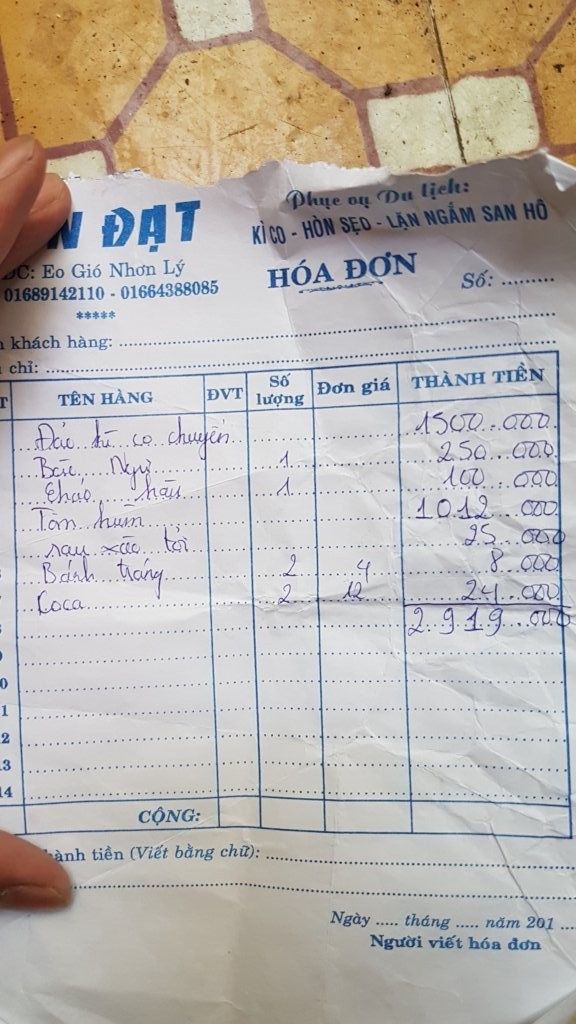 ĐẠT
Phục vụ Du lịch:
KÌ CO - HÒN SẸO - LẶN NGẮM SAN HÔ
ĐC: Eo Gió Nhơn Lý
01689142110 - 01664388085
*****
HÓA ĐƠN
Số: .........
khách hàng:
chỉ:
TÊN HÀNG ĐVT Số lượng Đơn giá THÀNH TIỀN
chuyến 1500.000
1 250.000
Cháo hàu 1 100.000
Tôm hùm 1012.000
rau xào tỏi 25.000
Bánh tráng 2 4 8.000
Coca 2 12 24.000
2.919.000
0
1
2
13
14
CỘNG:
thành tiền (Viết bằng chữ):
Ngày ..... tháng ..... năm 201 ...
Người viết hóa đơn